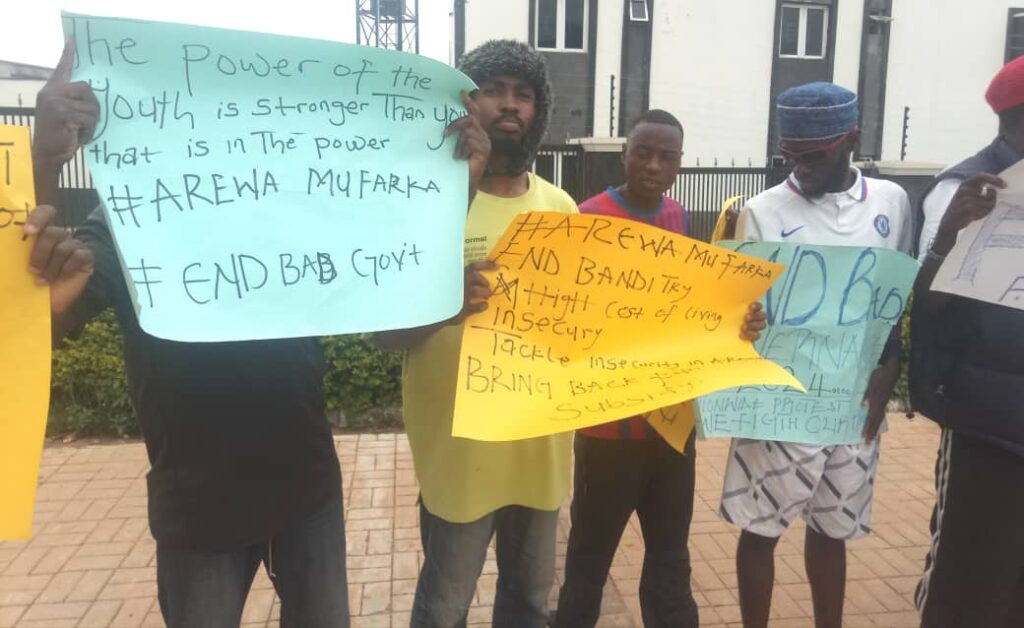 The Power of the
Youth is stronger Than you
that is in The power
#AREWA MUFARKA
# END BAD Govt
ormal
#AREWA MUFARKA
END BANDITRY
High Cost of Living
Insecury
Tackle Insecurity in
BRING BACK
Subsidy
END BAD
2024....
PROTEST